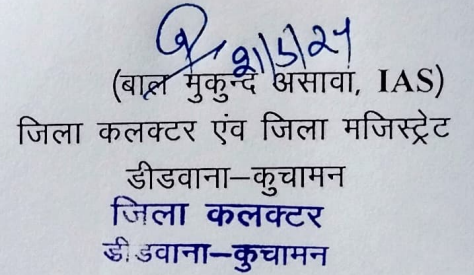 21/5/24
(बाल मुकुन्द असावा, IAS)
जिला कलक्टर एंव जिला मजिस्ट्रेट
डीडवाना–कुचामन
जिला कलक्टर
डीडवाना–कुचामन